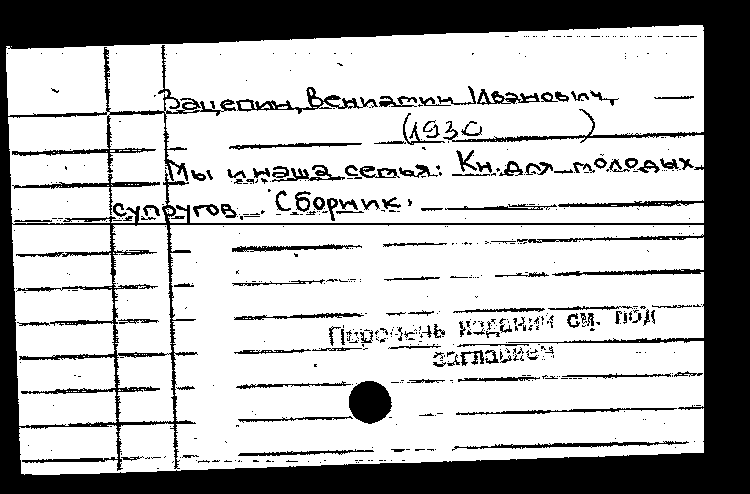 Зацепин, Вениамин Иванович,
(1930 )
Мы и наша семья: Кн. для молодых
супругов. Сборник.
Перечень изданий см. под
заглавием